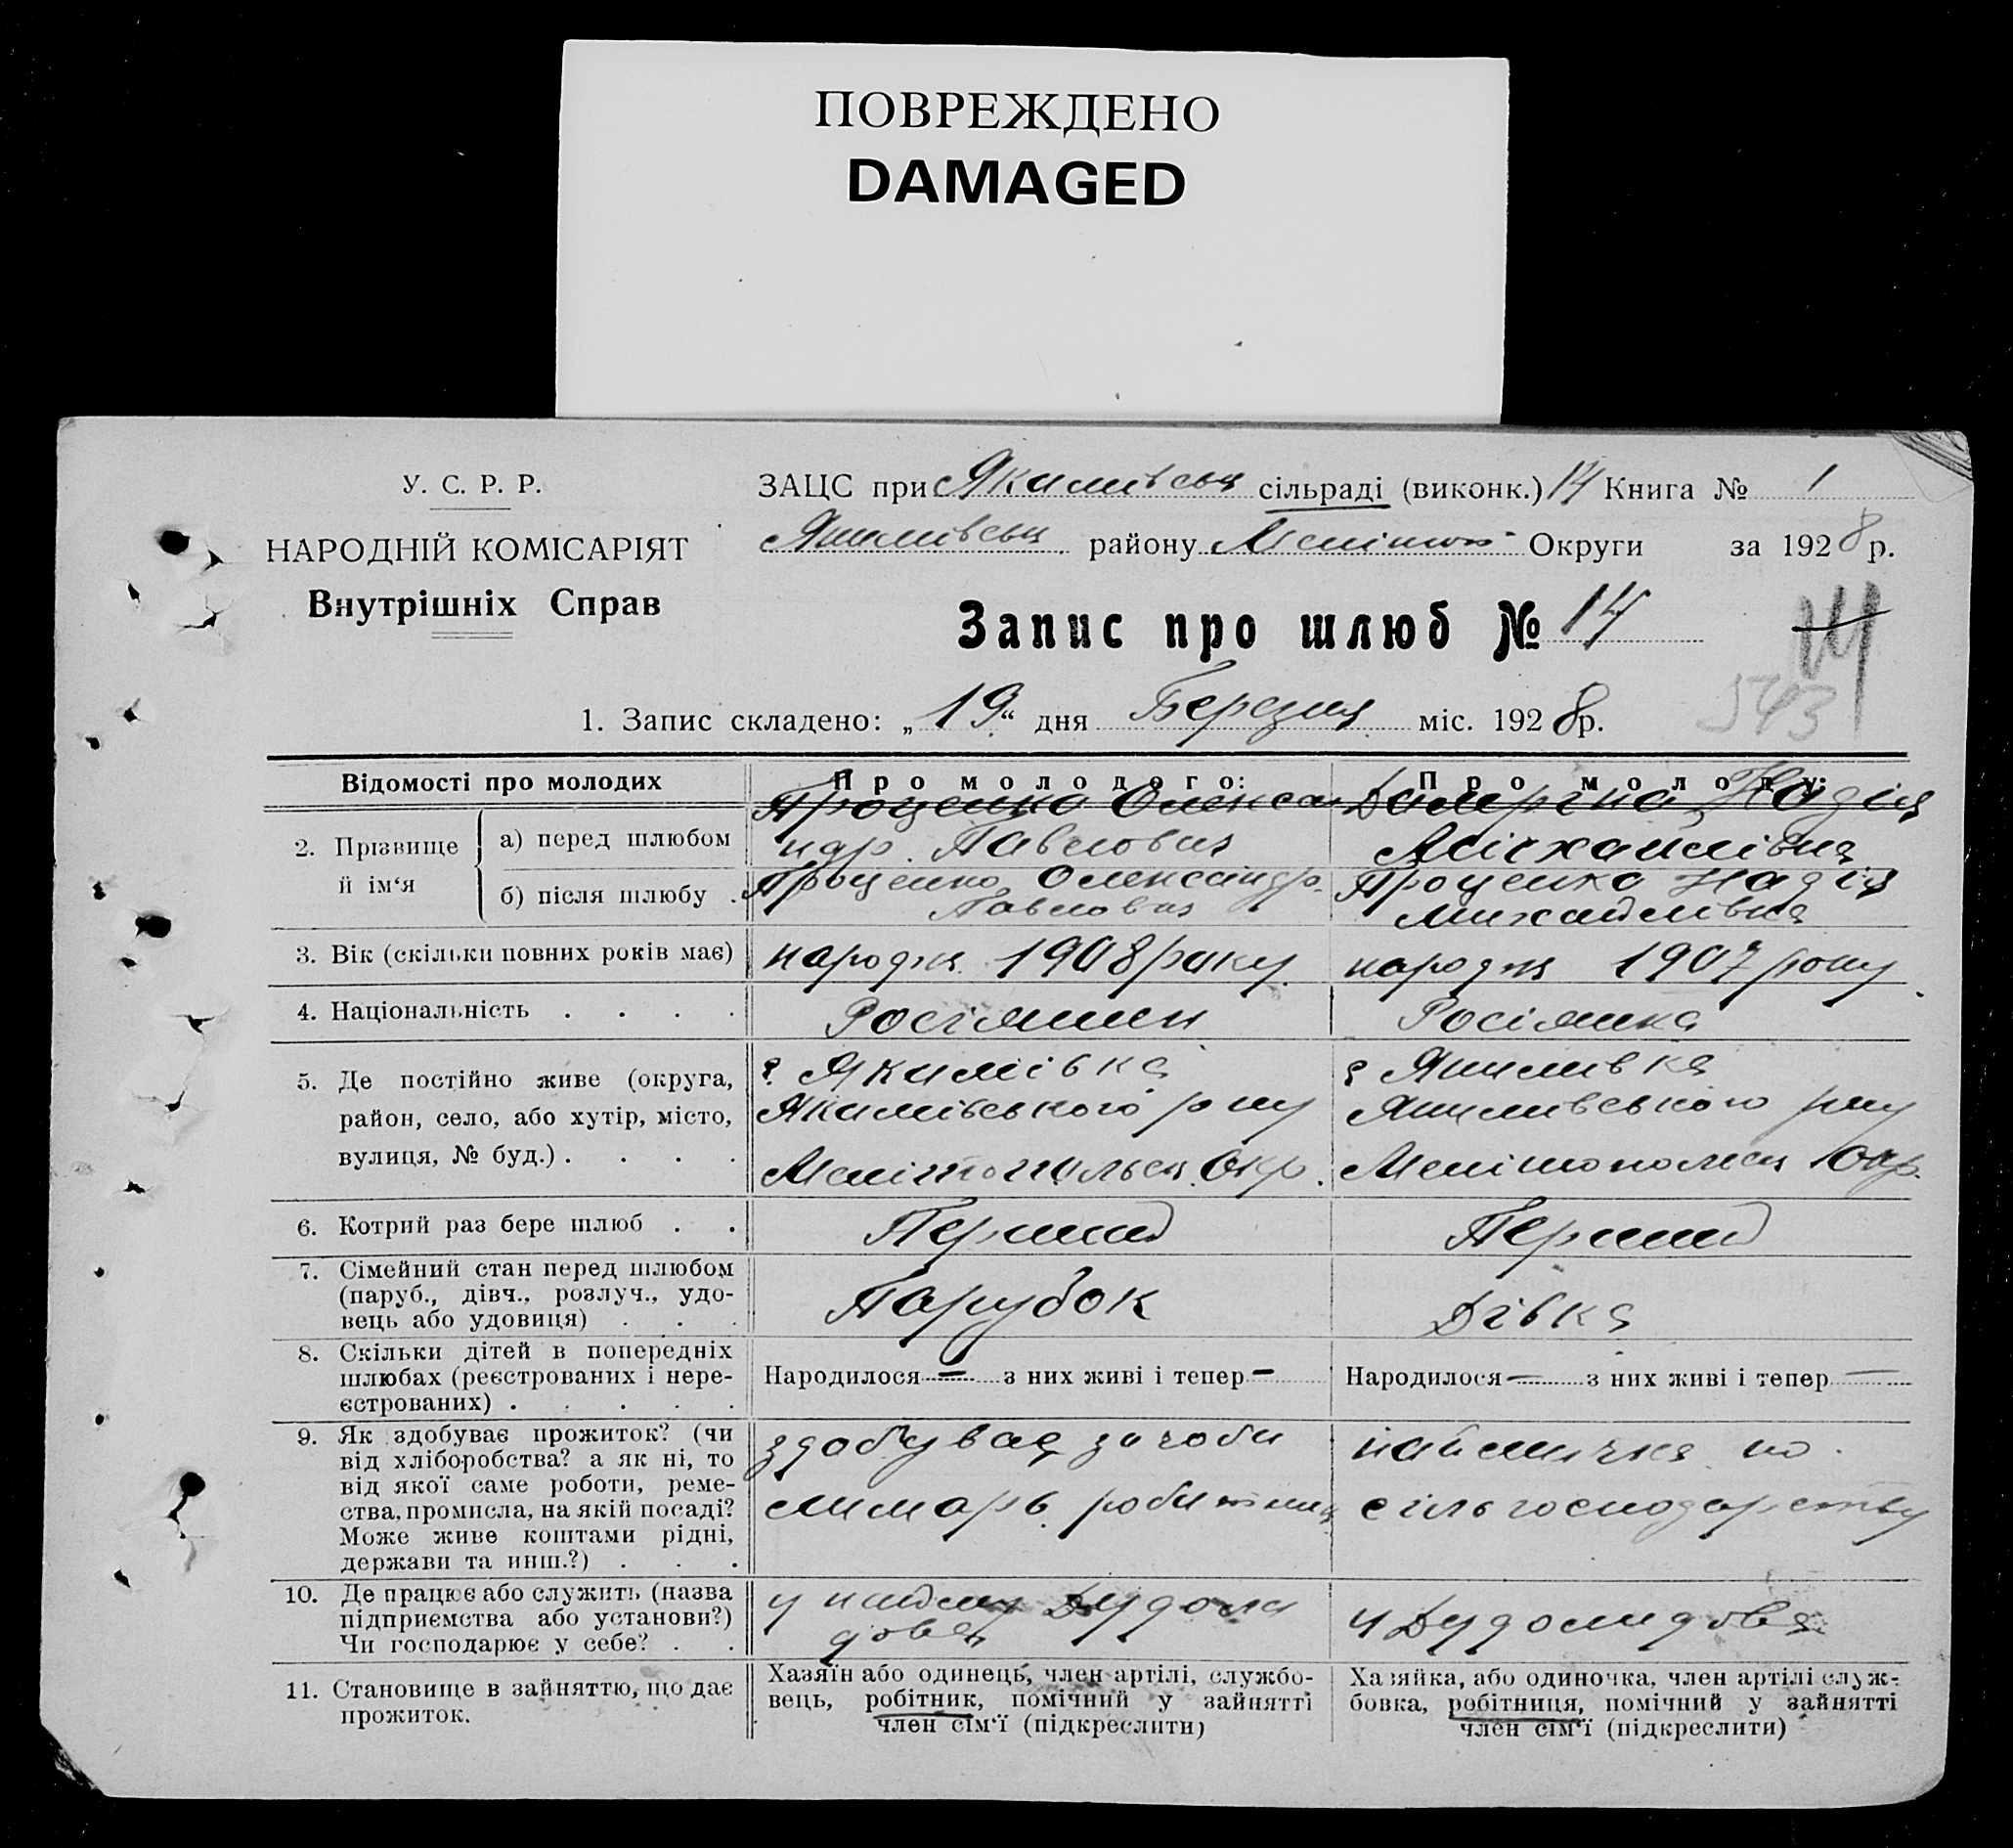 ПОВРЕЖДЕНО
DAMAGED
У. С. Р. Р.
НАРОДНІЙ КОМІСАРІЯТ
Внутрішніх Справ
ЗАЦС при Якимівськ сільраді (виконк.) 14 Книга № 1
Якимівськ району Меліто Округи за 1928 р.
Запис про шлюб № 14
14
543
1. Запис складено: „19“ дня Березня міс. 1928 р.
Відомості про молодих
Про молодого:
Про молоду:
2. Прізвище й ім‘я
а) перед шлюбом
Проценко Олексан
ндр Павлович
Надія
Місхайлівна
б) після шлюбу .
Проценко Олександр
Павлович
Проценко Надія
Михайлівна
3. Вік (скільки повних років має)
народж 1908 року
народж 1907 року
4. Національність . . . .
Росіянин
Росіянка
5. Де постійно живе (округа,
район, село, або хутір, місто,
вулиця, № буд.) . . . .
с. Якимівка
Якимівського р ну
Мелітопольськ. Окр.
с Якимивка
Якимивського рну
Мелітопольськ Окр.
6. Котрий раз бере шлюб . .
Перший
Перший
7. Сімейний стан перед шлюбом
(паруб., дівч., розлуч., удо-
вець або удовиця) . . .
Парубок
Дівка
8. Скільки дітей в попередніх
шлюбах (реєстрованих і нере-
єстрованих) . . . . .
Народилося — з них живі і тепер —
Народилося — з них живі і тепер —
9. Як здобуває прожиток? (чи
від хліборобства? а як ні, то
від якої саме роботи, реме-
ства, промисла, на якій посаді?
Може живе коштами рідні,
держави та инш.?) . . .
здобував зачоби
лимарь робитник
наймичка по
сільгосподарству
10. Де працює або служить (назва
підприємства або установи?)
Чи господарює у себе? . .
у найму
у
11. Становище в зайняттю, що дає
прожиток.
Хазяїн або одинець, член артілі, службо-
вець, робітник, помічний у зайнятті
член сім‘ї (підкреслити)
Хазяйка, або одиночка, член артілі служ-
бовка, робітниця, помічний у зайнятті
член сім‘ї (підкреслити)